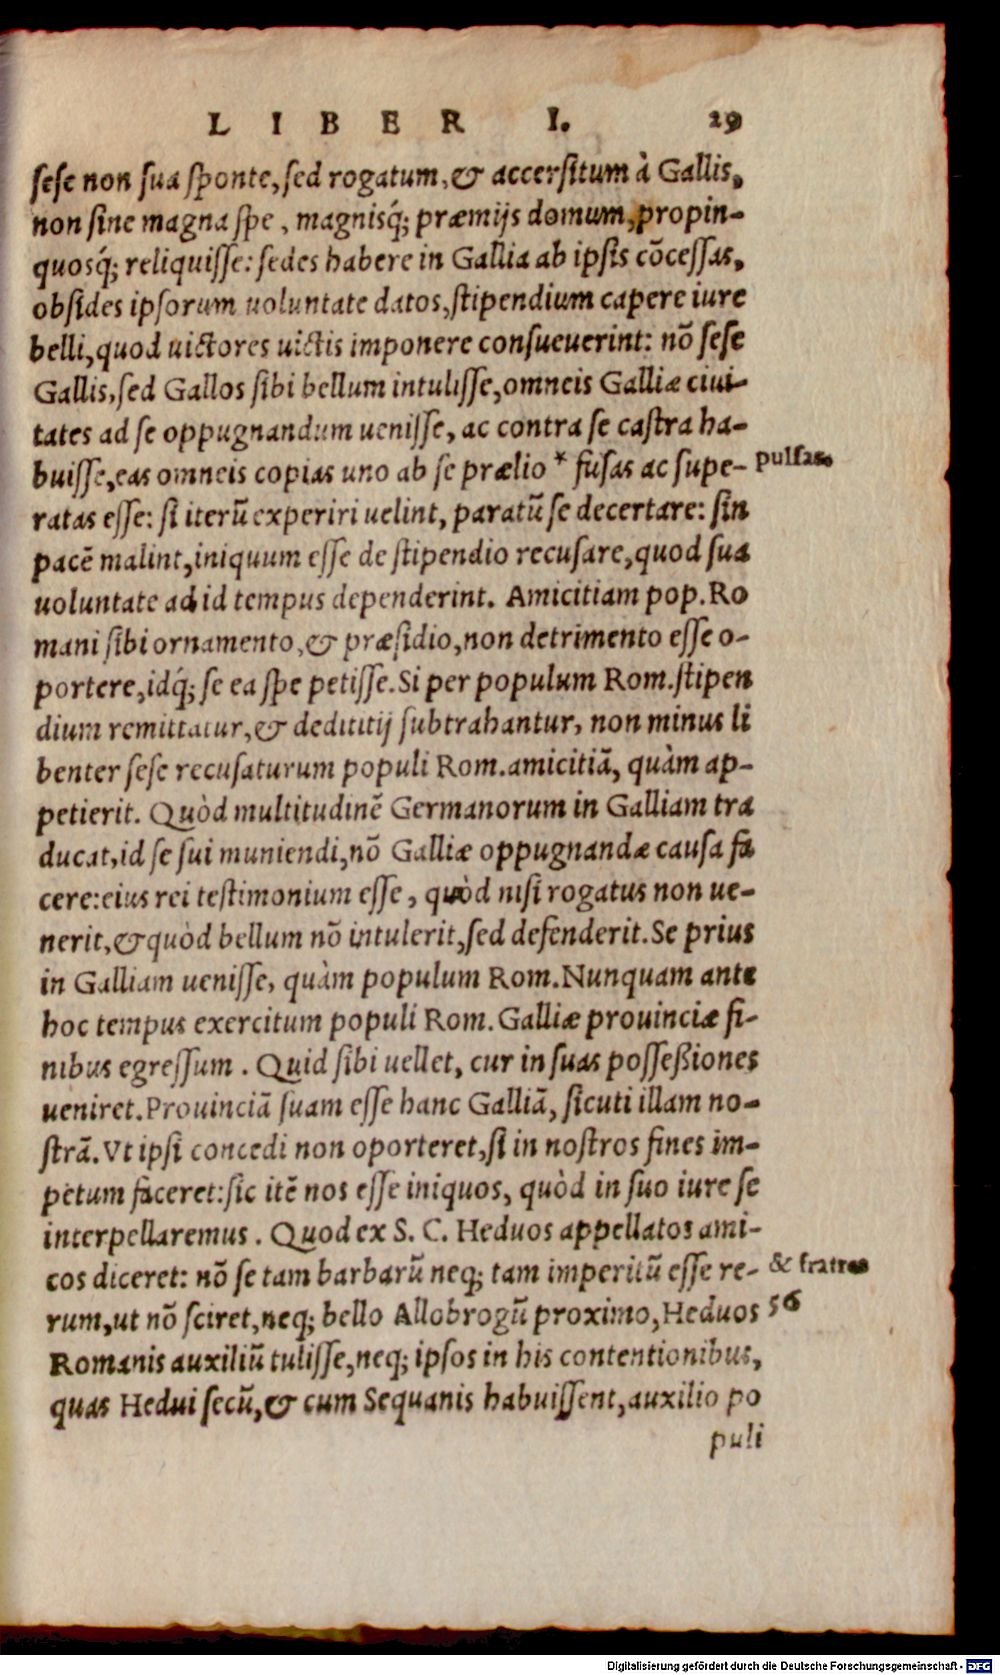 LIBER I. 29
sese non sua sponte, sed rogatum, & accersitum à Gallis,
non sine magna spe, magnisq́; præmijs domum, propin-
quosq́; reliquisse: sedes habere in Gallia ab ipsis cõcessas,
obsides ipsorum uoluntate datos, stipendium capere iure
belli, quod uictores uictis imponere consueuerint: nõ sese
Gallis, sed Gallos sibi bellum intulisse, omneis Galliæ ciui-
tates ad se oppugnandum uenisse, ac contra se castra ha-
buisse, eas omneis copias uno ab se prælio * fusas ac supe- pulsas.
ratas esse: si iterũ experiri uelint, paratũ se decertare: sin
pacẽ malint, iniquum esse de stipendio recusare, quod sua
uoluntate ad id tempus dependerint. Amicitiam pop. Ro
mani sibi ornamento, & præsidio, non detrimento esse o-
portere, idq́; se ea spe petisse. Si per populum Rom. stipen
dium remittatur, & dedititij subtrahantur, non minus li
benter sese recusaturum populi Rom. amicitiã, quàm ap-
petierit. Quòd multitudinẽ Germanorum in Galliam tra
ducat, id se sui muniendi, nõ Galliæ oppugnandæ causa fa
cere: eius rei testimonium esse, quòd nisi rogatus non ue-
nerit, & quòd bellum nõ intulerit, sed defenderit. Se prius
in Galliam uenisse, quàm populum Rom. Nunquam ante
hoc tempus exercitum populi Rom. Galliæ prouinciæ fi-
nibus egressum. Quid sibi uellet, cur in suas posseßiones
ueniret. Prouinciã suam esse hanc Galliã, sicuti illam no-
strã. Vt ipsi concedi non oporteret, si in nostros fines im-
petum faceret: sic itẽ nos esse iniquos, quòd in suo iure se
interpellaremus. Quod ex S. C. Heduos appellatos ami-
cos diceret: nõ se tam barbarũ neq; tam imperitũ esse re- & fratres
rum, ut nõ sciret, neq; bello Allobrogũ proximo, Heduos 56
Romanis auxiliũ tulisse, neq; ipsos in his contentionibus,
quas Hedui secũ, & cum Sequanis habuissent, auxilio po
puli
Digitalisierung gefördert durch die Deutsche Forschungsgemeinschaft - DFG